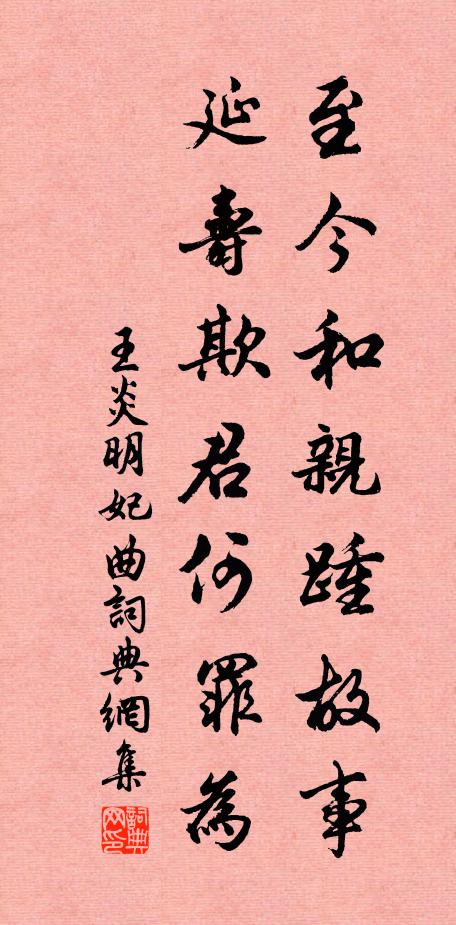 至今和親踵故事
延壽欺君何罪為
王炎明妃曲詞典網集
詞典网印